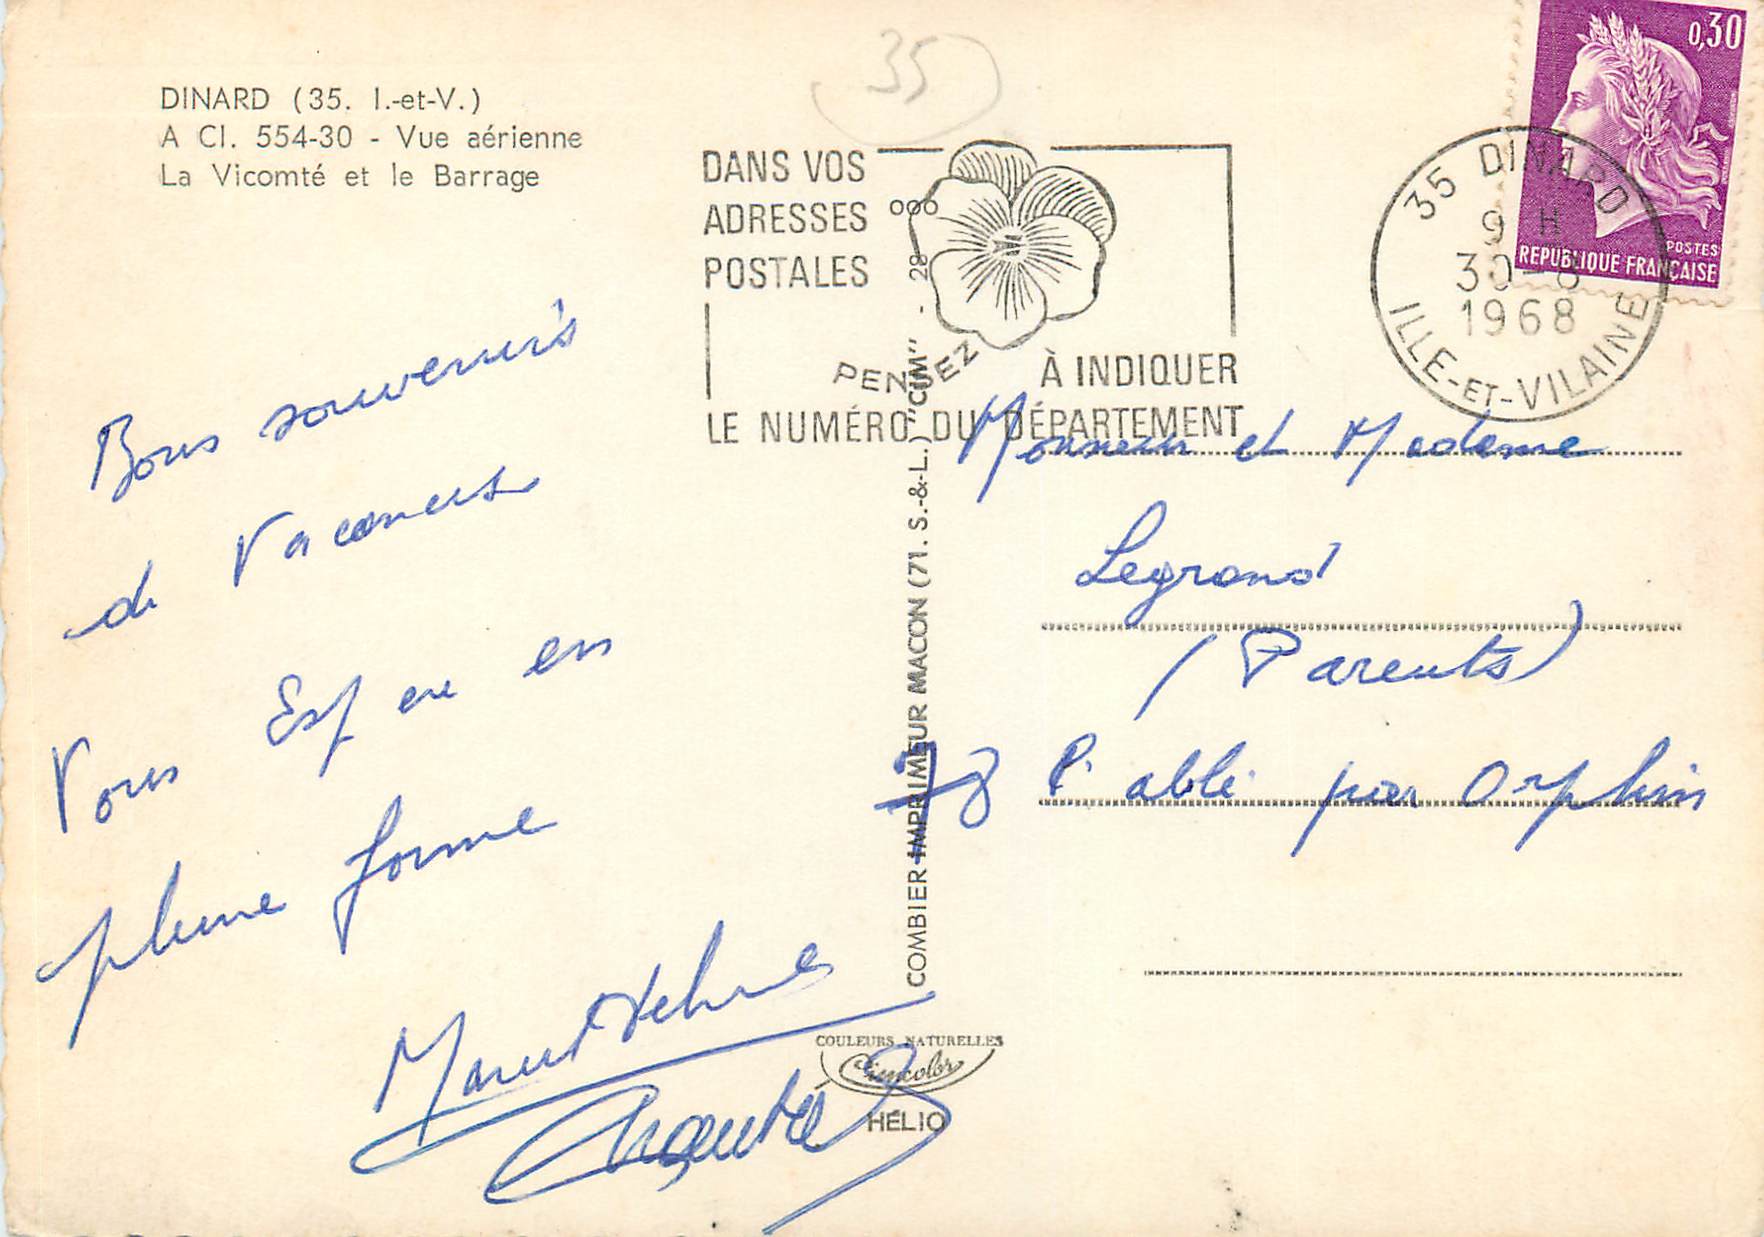 35
DINARD (35. I.-et-V.)
A Cl. 554-30 - Vue aérienne
La Vicomté et le Barrage
DANS VOS
ADRESSES
POSTALES
PENSEZ
À INDIQUER
LE NUMÉRO DU DÉPARTEMENT
0,30
POSTES
REPUBLIQUE FRANÇAISE
35 DINARD
9 H
30-8
1968
ILLE-ET-VILAINE
Bons souvenirs
de Vacances
Vous Esp en
pleine forme
Marie Helene
COMBIER IMPRIMEUR MACON (71. S.-&-L.) "CIM" - 28
COULEURS NATURELLES
Cimcolor
HÉLIO
Monsieur et Madame
Legrand
(Parents)
78 P. ablé par Orphin